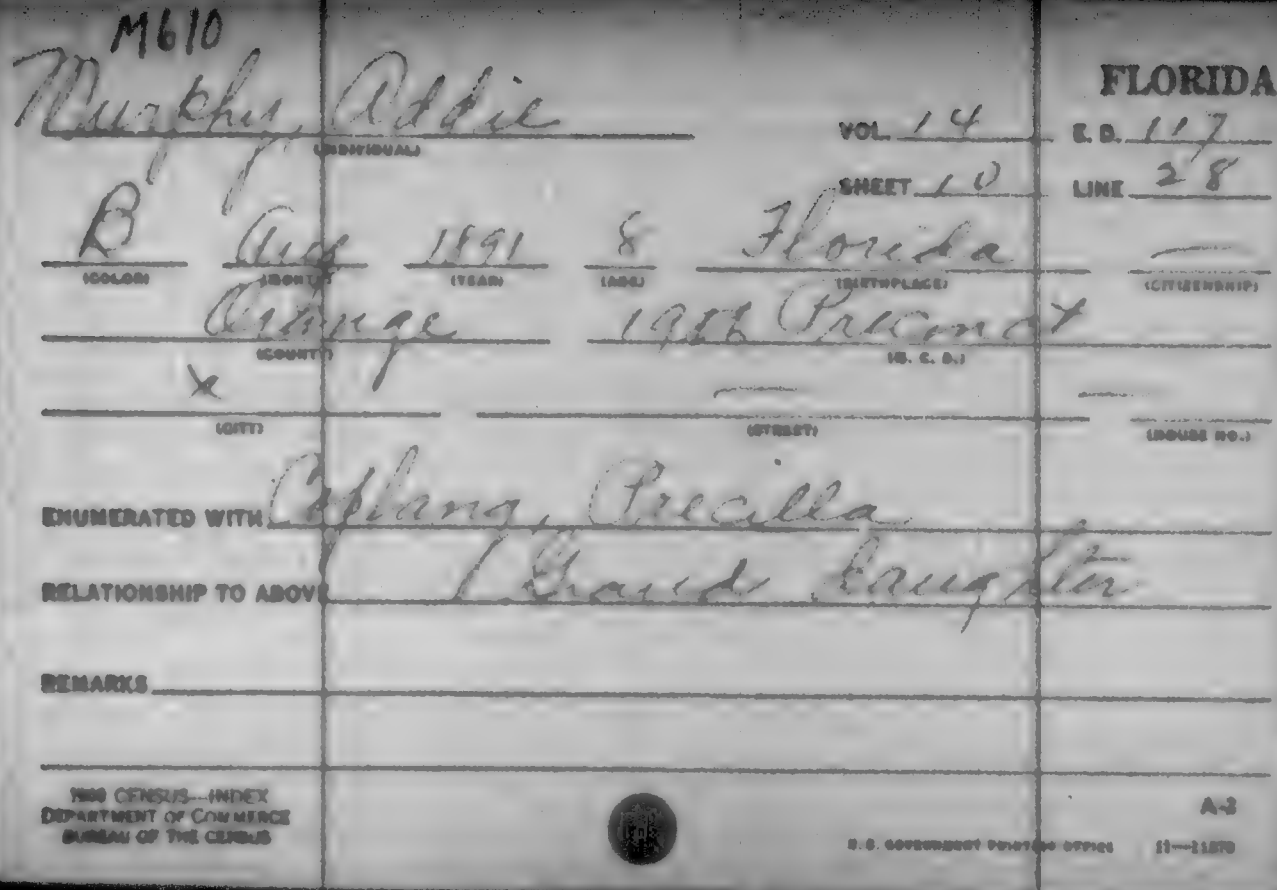 M610
FLORIDA
Murphy, Addie
(INDIVIDUAL)
VOL. 14 E. D. 117
SHEET 10 LINE 28
B Aug 1891 8 Florida —
(COLOR) (MONTH) (YEAR) (AGE) (BIRTHPLACE) (CITIZENSHIP)
Orange 19th Precinct
(COUNTY) (M. C. D.)
x — —
(CITY) (STREET) (HOUSE NO.)
ENUMERATED WITH Copland, Precilla
RELATIONSHIP TO ABOVE Grand daughter
REMARKS
1900 CENSUS—INDEX
DEPARTMENT OF COMMERCE
BUREAU OF THE CENSUS
A-2
U.S. GOVERNMENT PRINTING OFFICE